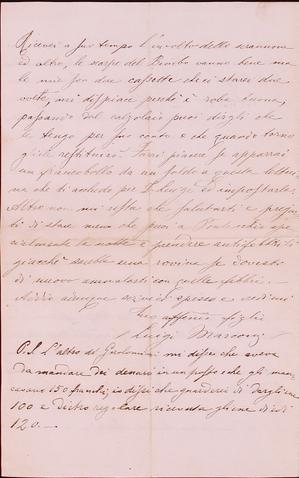 Ricevei a suo tempo l'involto dello scannone
ed altro, le scarpe del Bimbo vanno bene ma
le mie son due cassette che ci starei due
volte, mi dispiace perchè è roba buona,
passano dal calzolaio puoi dirgli che
le tengo per suo conto e che quando torno
gliele restituirò. Farai piacere se apparrai
un francobollo da un soldo a questa lettera
ma che ti accludo per
Altro non mi resta che salutarti e pregar
ti di stare meno che puoi a Pontecchio spe
cialmente la notte e prendere antifebbrili
giacchè sarebbe una rovina se dovesti
di nuovo ammalarti con quelle febbri. -
Addio adunque scrivi spesso e credimi
Tuo affmo figlio
Luigi Marconi
P.S. L'altro dì mi disse che aveva
da mandare dei denari in un posto che gli man
cavano 150 franchi; io dissi che guarderei di dargliene
100 e dietro regolare ricevuta gliene diedi
120. —